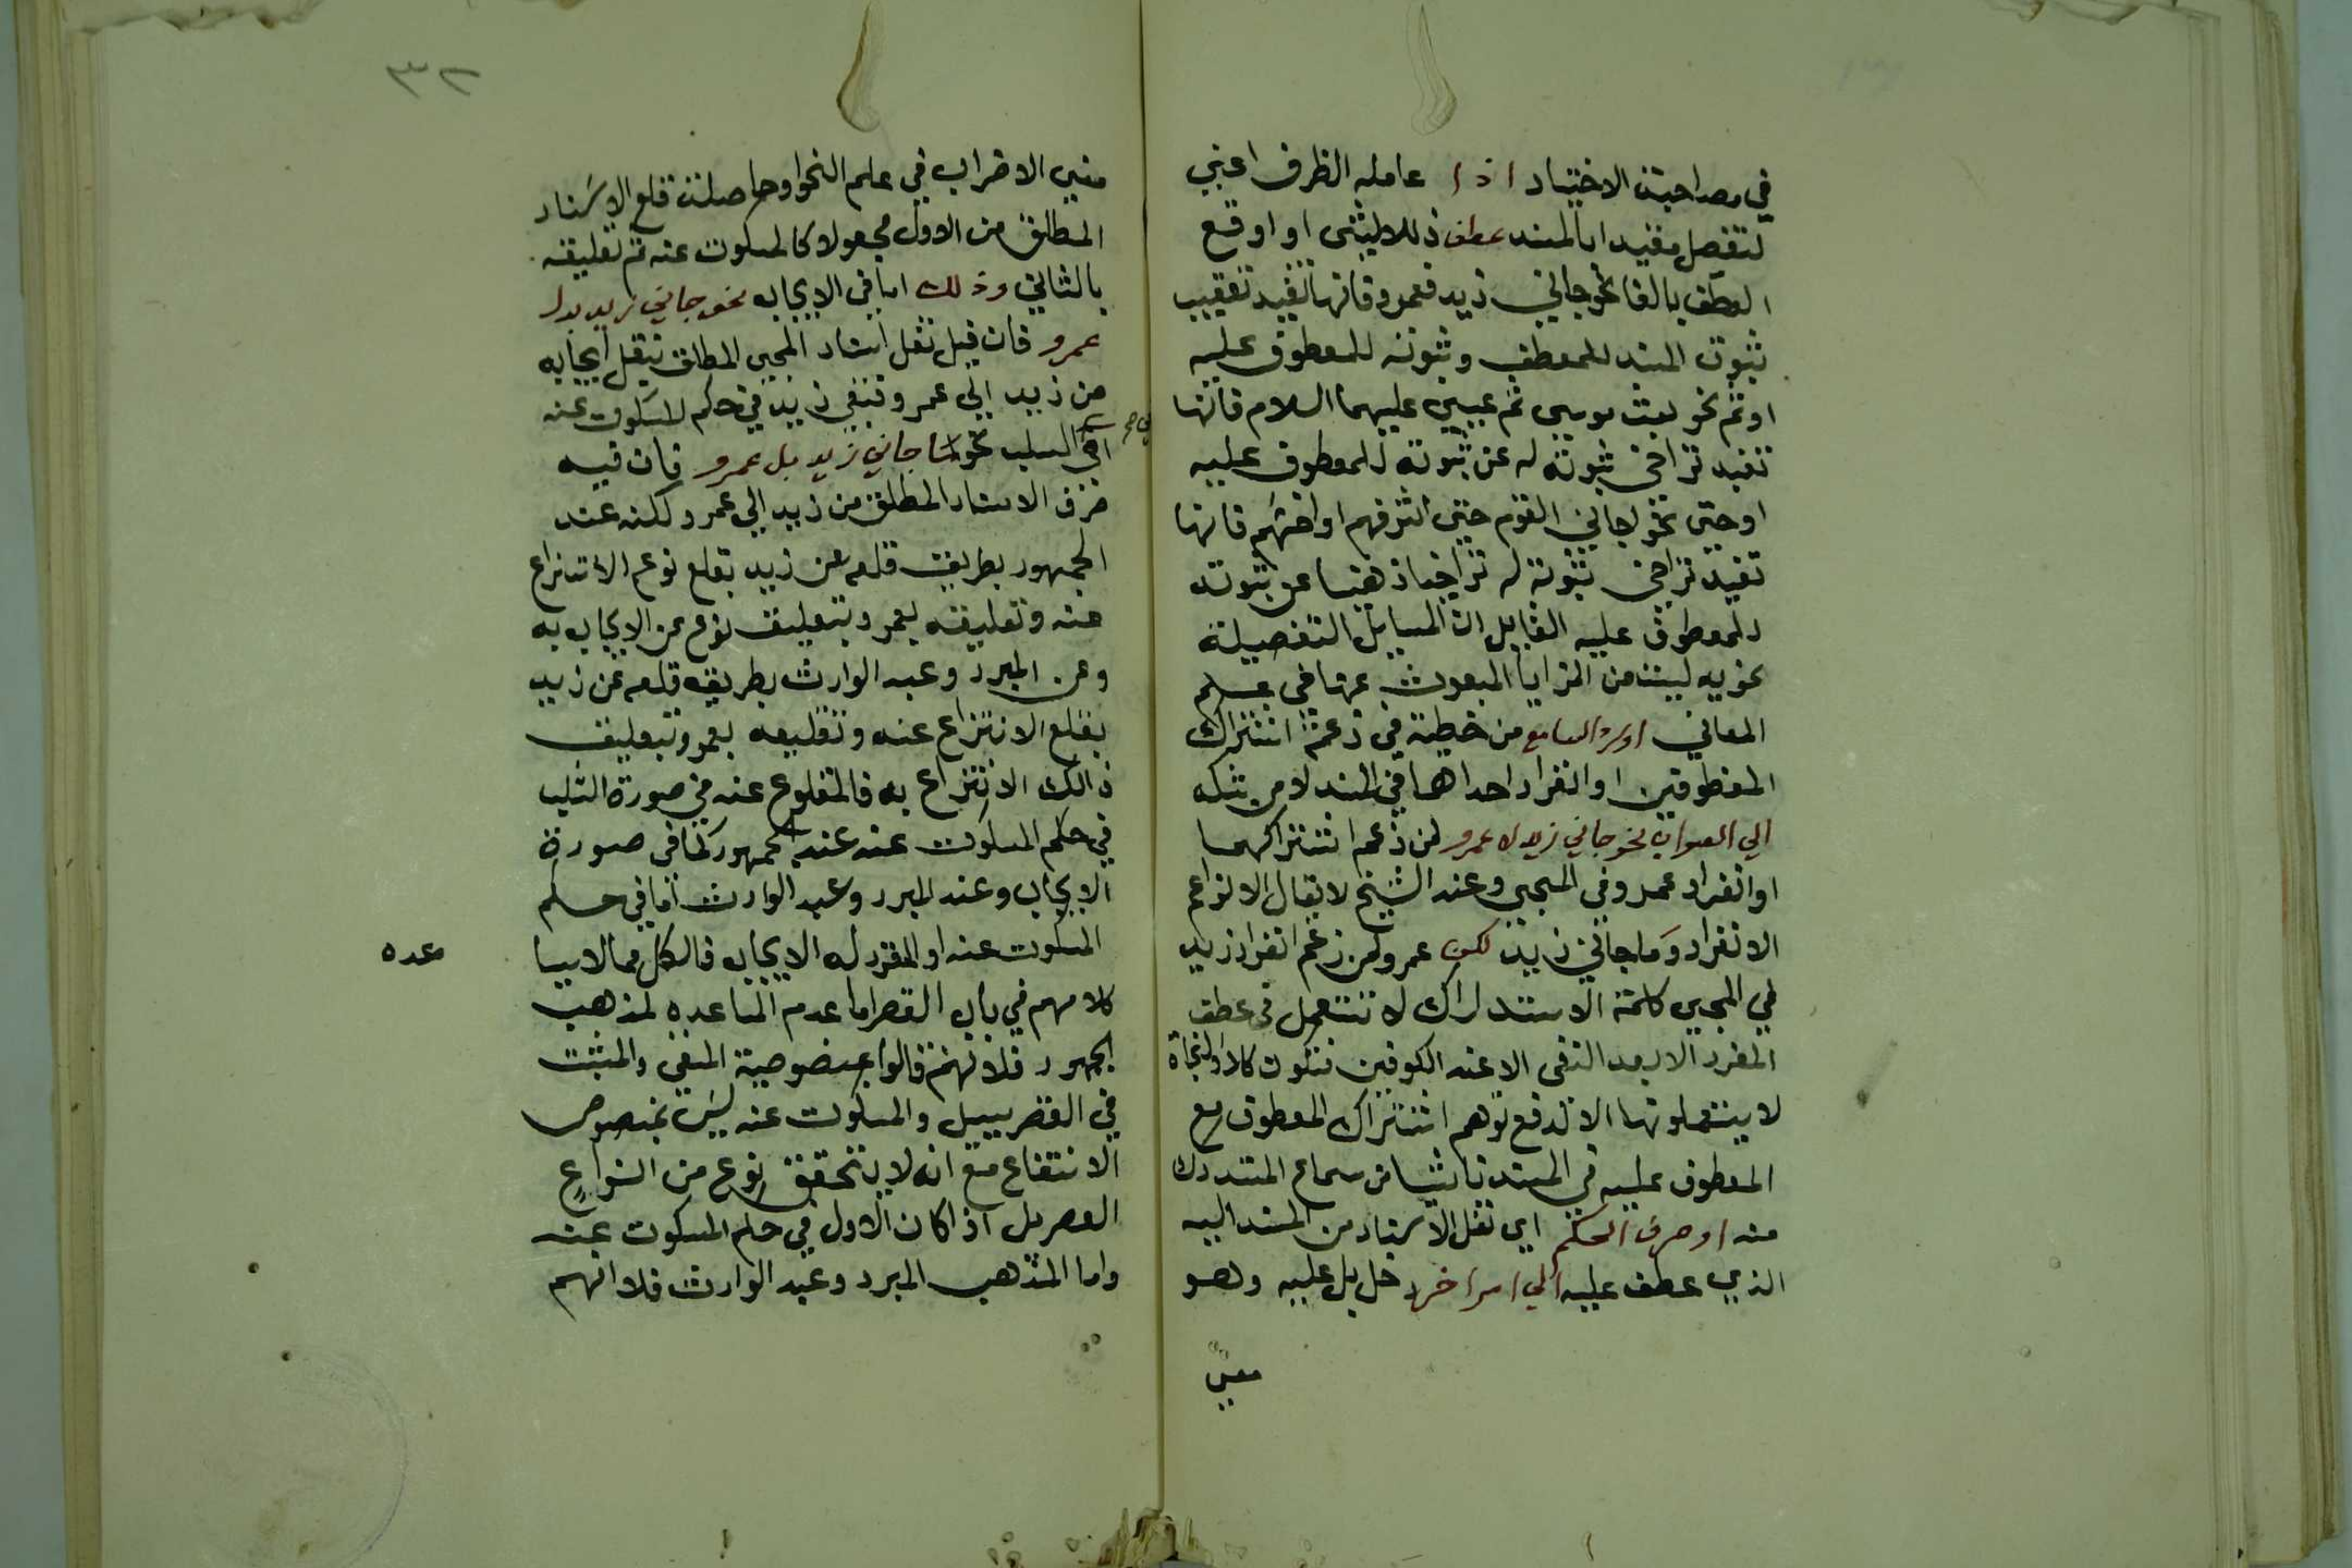 في مصاحبت الاختيار اذا عامله الظرف اعني
لتفصل مفيدا بالمسند عطف ذللا ليثنى او اوقع
العطف بالفا نحو جاني زيد فعمرو فانها تفيد تعقيب
ثبوت المسند للمعطف وثبوته للمعطوف عليه
او ثم نحو بعث موسى ثم عيسي عليهما السلام فانها
تفيد تراخي ثبوته له عن ثبوته للمعطوف عليه
او حتى نحو جاني القوم حتى اشرفهم او اخسهم فانها
تفيد تراخي ثبوته له تراخيا ذهنيا عن ثبوته
للمعطوف عليه القايل ان المسايل التفصيلة
نحويه ليست من المزايا المبعوث عنها في علم
المعاني او رد السامع من خطيئه في زعمه اشتراك
المعطوفين او انفراد احداهما في المسند لا من شكه
الي الصواب نحو جاني زيد لا عمرو لمن زعم اشتراكهما
او انفراد عمرو في المجي وعند الشيخ لا يقال الا لزاعم
الانفراد وما جاني زيد لكن عمرو لمن زعم انفراد زيد
في المجي كلمة الاستدراك لا تستعمل في عطف
المفرد الا بعد النفى الا عند الكوفين فتكون كلا والنجاة
لا يستعملونها الا لدفع توهم اشتراك المعطوف مع
المعطوف عليه في المسند ناشيا من سماع المستدرك
منه او صرف الحكم اي نقل الاسناد من المسند اليه
الذي عطف عليه الي امر اخر دخل بل عليه وهو
معنى
٣٢
معنى الاضراب في علم النحو وحاصلت قلع الاسناد
المطلق من الاول مجعولا كالمسكوت عنه ثم تعليقه
بالثاني وذلك اما في الايجاب نحو جاني زيد بل
عمرو فان فيه نقل اسناد المجي المطلق بنقل ايجابه
من زيد الي عمرو فبقي زيد في حكم المسكوت عنه
او في السلب نحو ما جاني زيد بل عمرو فان فيه
صرف الاسناد المطلق من زيد الي عمرو لكنه عند
الجمهور بطريق قلعه عن زيد بقلع نوعه الانتزاع
عنه وتعليقه بعمرو بتعليق نوع من الايجاب به
وعن المبرد وعبد الوارث بطريقه قلعه عن زيد
بقلع الانتزاع عنه وتعليقه بعمرو بتعليق
ذالك الانتزاع به فالمقلوع عنه في صورة السلب
في حكم المسكوت عنه عند الجمهور كما في صورة
الايجاب وعند المبرد وعبد الوارث اما في حكم
المسكوت عنه او المقرر له الايجاب فالكل مما لا
كلامهم في باب القصر اما عدم المساعده لمذهب
الجمهور فلانهم قالوا بمنصوصية المنفى والمثبت
في القصر ببل والمسكوت عنه ليس بمنصوص
الانتفاع مع انه لا يتحقق نوع من انواع
القصر بل اذا كان الاول في حكم المسكوت عنه
واما المذهب المبرد وعبد الوارث فلانهم